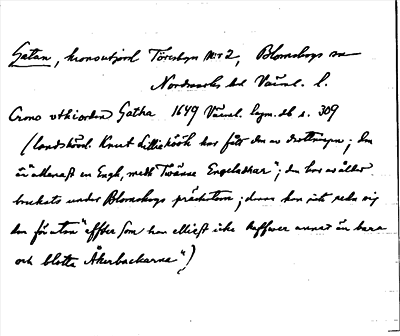 Gatan, kronoutjord Töresbyn No 2, Blomskogs sn
Nordmarks hd Värml. l.
Crono uthiorden Gatha 1649 Värml. lagm.db s. 309
(landshöfd. Knut Lilliehöök har fått den av drottningen; den
är allenast en Engh, medh Twänne Engeladhor"; den har av ålder
brukats under Blomskogs prästetorn; denne kan icke reda sig
den förutan "effter som han elliest icke hafwer annat än bara
och blotta Åkerbackarne")